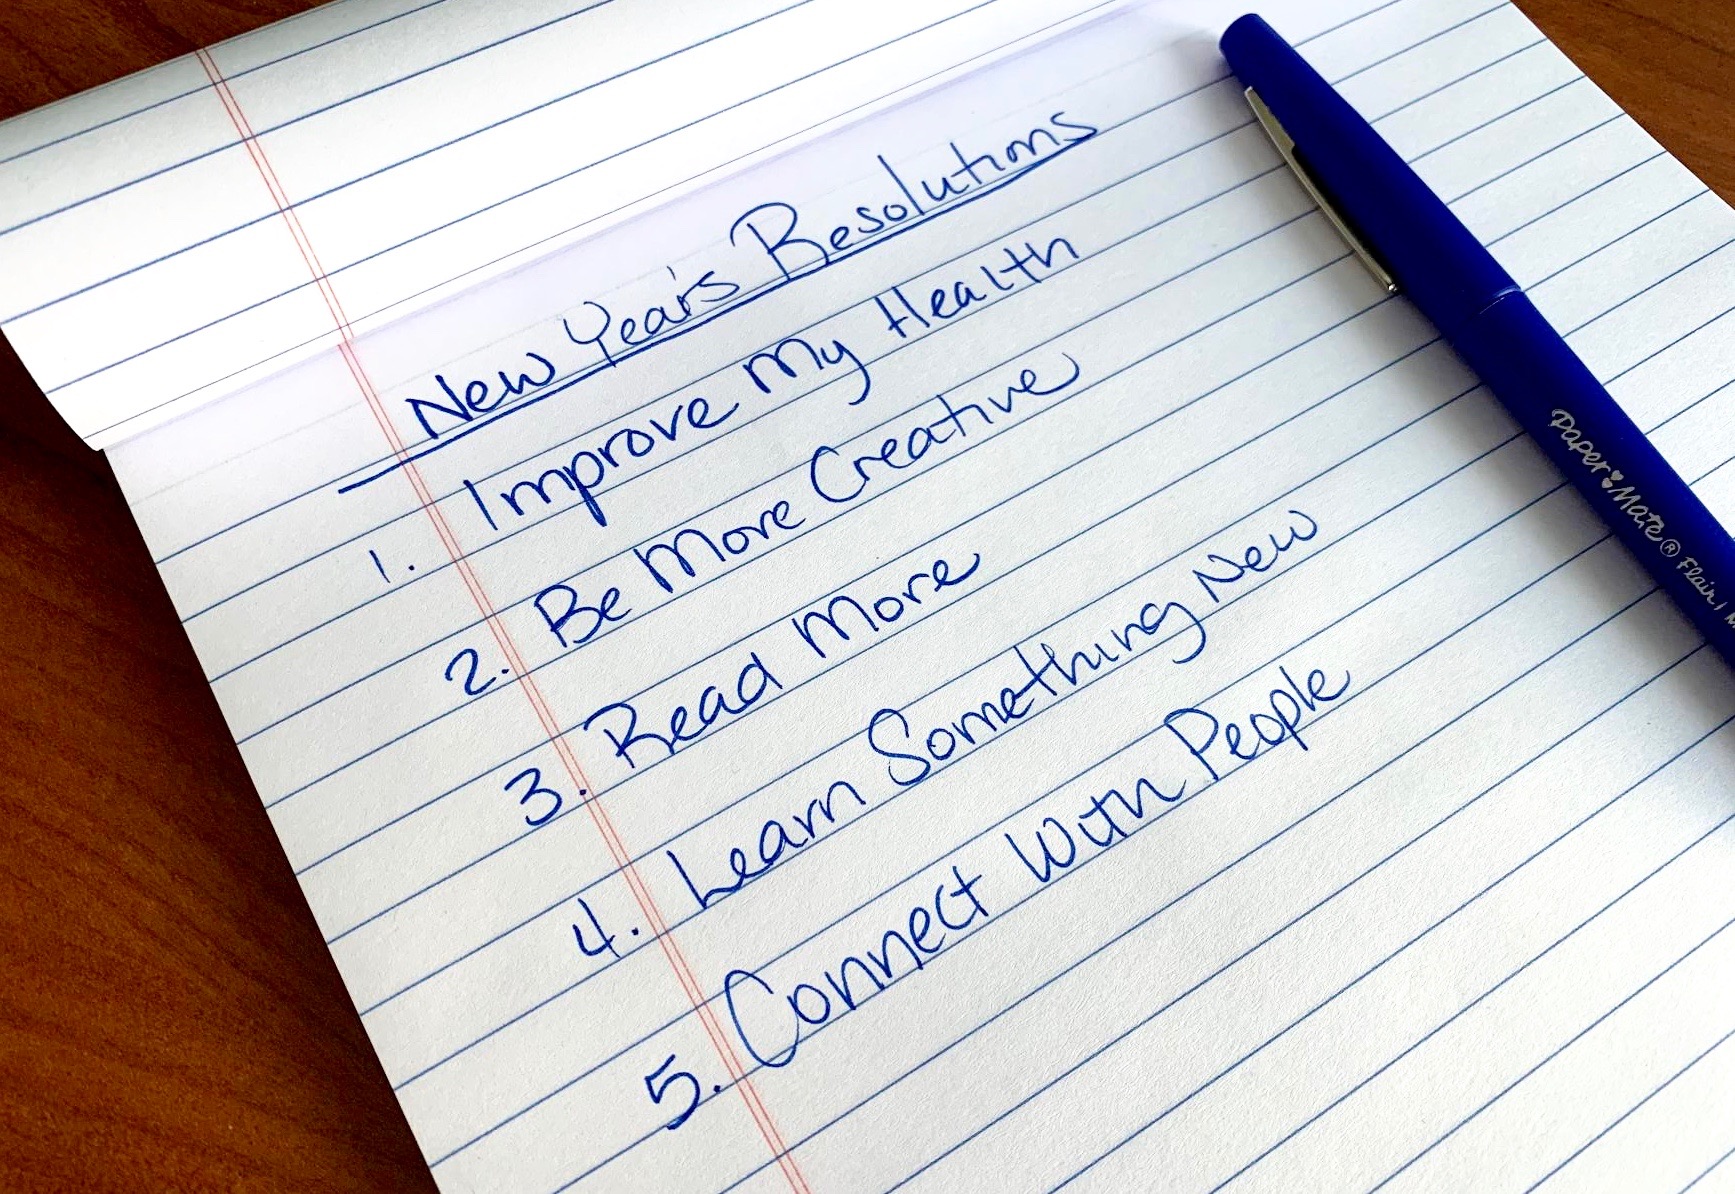 New Year's Resolutions
1. Improve My Health
2. Be More Creative
3. Read More
4. Learn Something New
5. Connect With People
Paper Mate® Flair